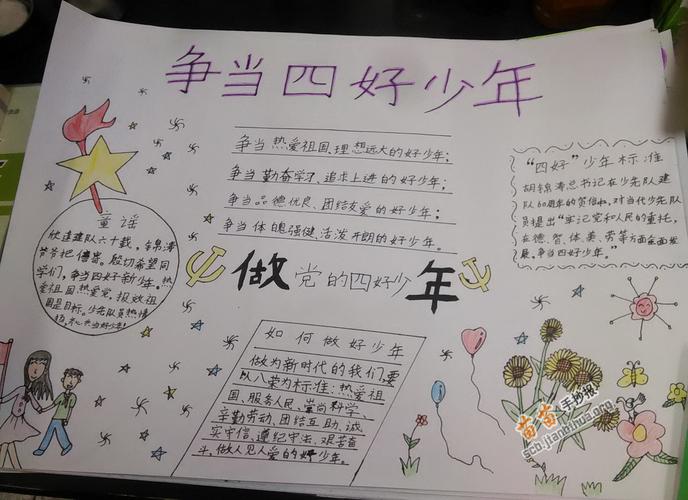 争当四好少年
争当 热爱祖国、理想远大的好少年；
争当 勤奋学习、追求上进的好少年；
争当品德优良、团结友爱的好少年；
争当 体魄强健、活泼开朗的好少年。
做党的四好少年
童谣
欣逢建队六十载，锦涛
爷爷把信寄。殷切希望同
学们，争当四好新少年。热
爱祖国热爱党，报效祖
国是目标。少先队员热情
"四好"少年标准
胡锦涛总书记在少先队建
队60周年的贺信中，对当代少先队
员提出"牢记党和人民的重托，
在德、智、体、美、劳等方面全面发
展。争当四好少年。
如何做好少年
做为新时代的我们，要
以八荣为标准：热爱祖
国、服务人民、崇尚科学、
辛勤劳动、团结互助、诚
实守信、遵纪守法、艰苦奋
斗。做人见人爱的好少年。
苗苗手抄报
scb.jianbihua.org